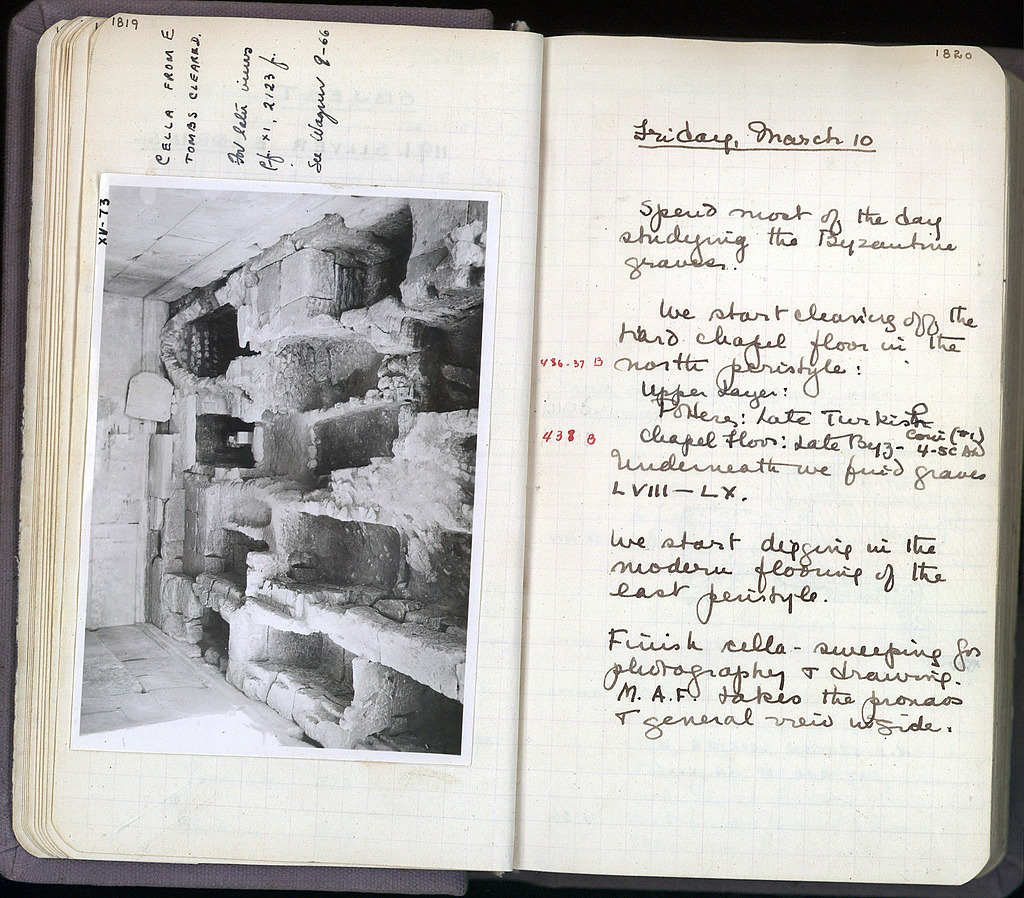 1819
CELLA FROM E
TOMBS CLEARED.
For later views
Cf. XI, 2123 f.
See Wagner 9-66
XV-73
1820
Friday, March 10
Spend most of the day
studying the Byzantine
graves.
We start clearing off the
hard chapel floor in the
436-37 B north peristyle:
Upper Layer:
POHeres: Late Turkish
438 B Chapel floor: Late Byz- Coin (#1)
4-5C AD
Underneath we find graves
LVIII - LX.
We start digging in the
modern flooring of the
east peristyle.
Finish cella - sweeping for
photography & drawing.
M. A. F. takes the pronaos
& general view inside.